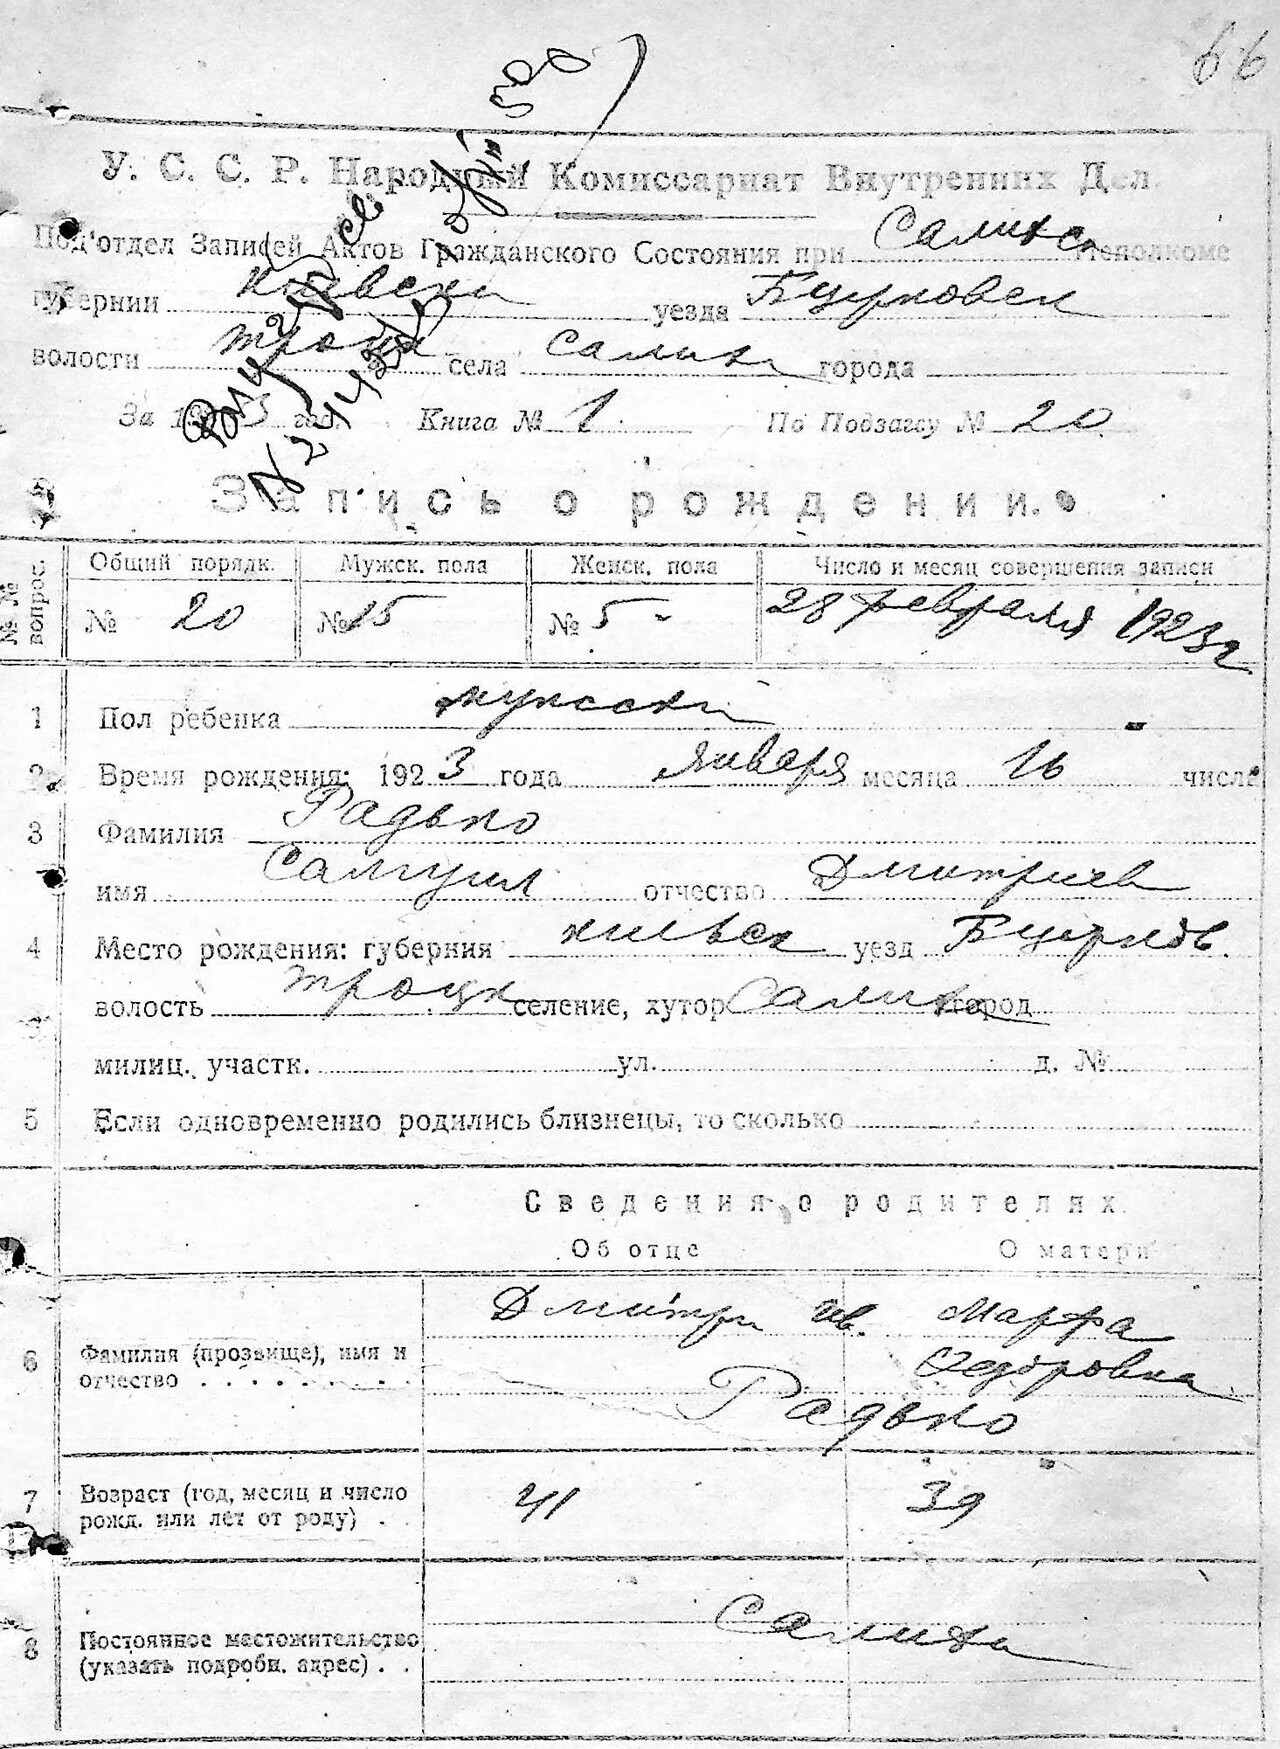 66
У. С. С. Р. Народный Комиссариат Внутренних Дел.
Под'отдел Записей Актов Гражданского Состояния при Салиха сполкоме
губернии Киевска уезда Бцерковск
волости Троцк села Салиха города
За 1923 год. Книга № 1. По Подзагсу № 20.
Запись о рождении.
№ № вопрос. Общий порядк. Мужск. пола Женск. пола Число и месяц совершения записи
№ 20 № 15 № 5 - 28 февраля 1923 г
1 Пол ребенка мужской
2 Время рождения: 1923 года января месяца 16 числа
3 Фамилия Радько
имя Самуил отчество Дмитриев
4 Место рождения: губерния киевск уезд Бцерков.
волость Троцк селение, хутор Салиха город
милиц. участк. ул. д. №
5 Если одновременно родились близнецы, то сколько
Сведения о родителях
Об отце О матери
6 Фамилия (прозвище), имя и отчество . . . . . . . . Дмитри Ив. Марфа
Федоровна
Радько
7 Возраст (год, месяц и число рожд. или лет от роду) . . 41 39
8 Постоянное местожительство (указать подробн. адрес) . . Салиха